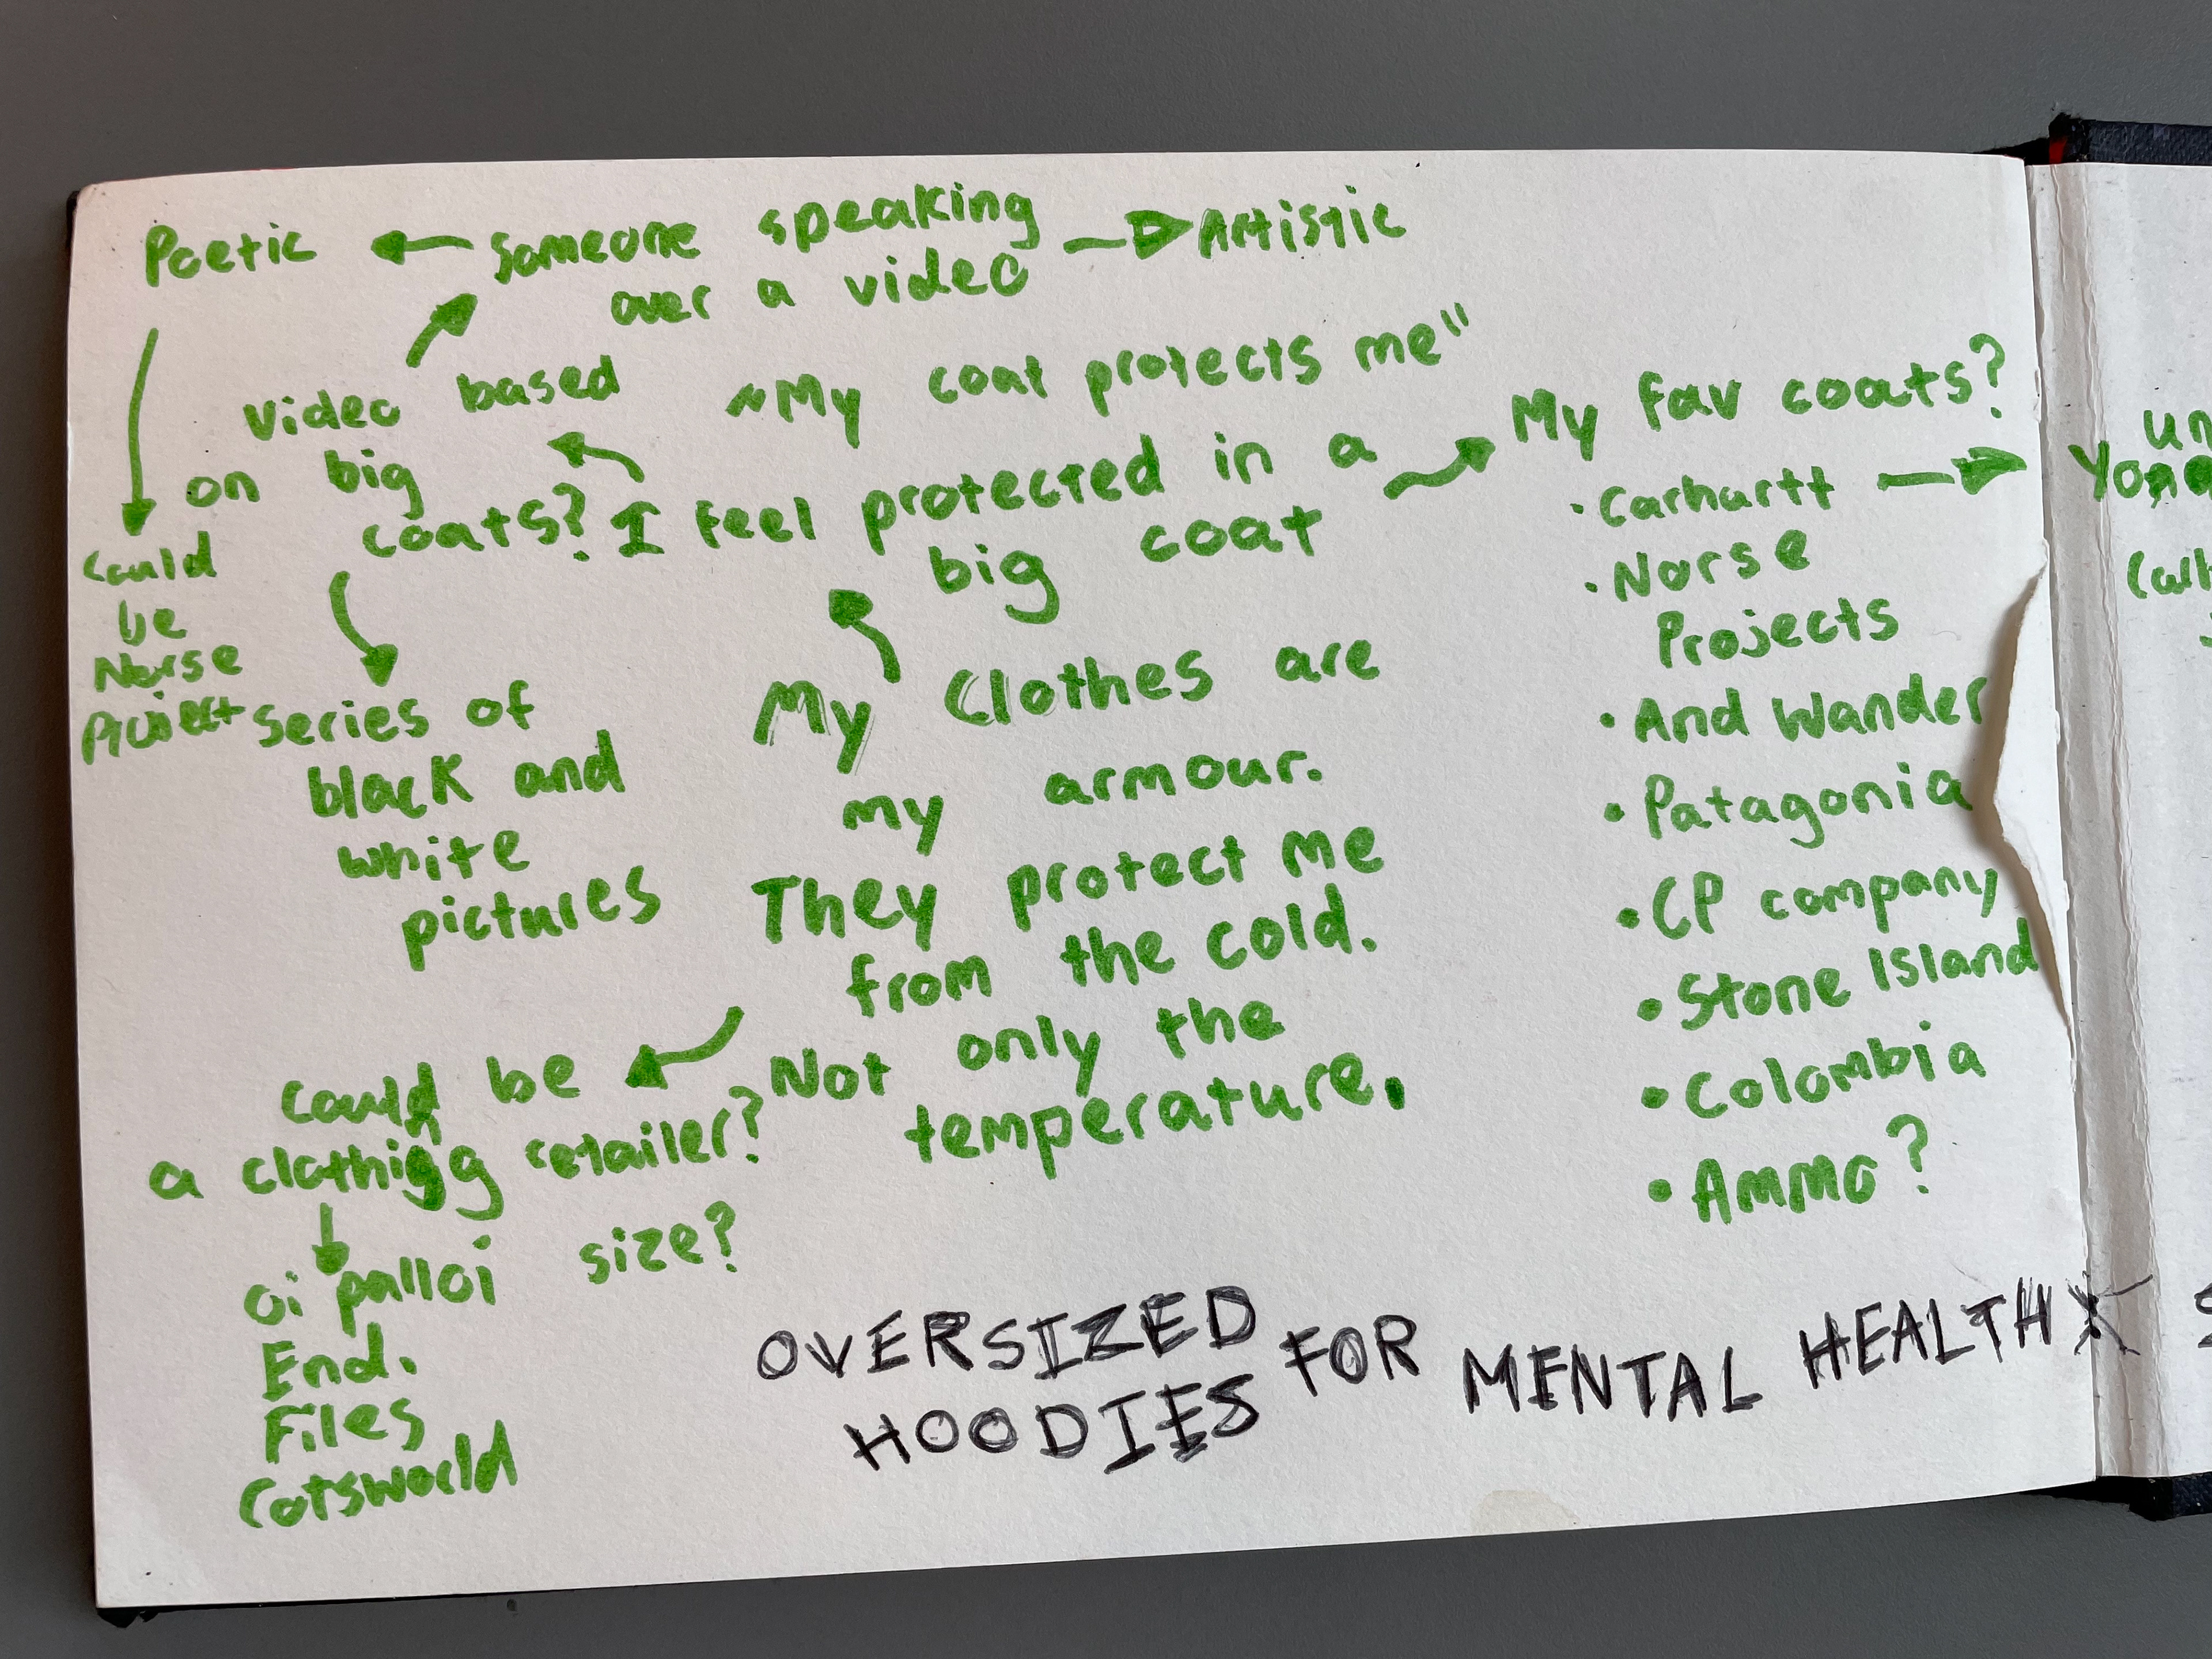 Poetic
someone speaking
over a video
Artistic
video based
on big
coats?
"My coat protects me"
I feel protected in a
big coat
My fav coats?
• Carhartt
• Norse
Projects
• And Wander
• Patagonia
• CP company
• Stone Island
• Colombia
• Ammo?
could
be
Norse
Project
series of
black and
white
pictures
My Clothes are
my armour.
They protect me
from the cold.
Not only the
temperature.
could be
a clothing retailer?
oi palloi size?
End.
Files
Cotsworld
OVERSIZED
HOODIES FOR MENTAL HEALTH
un